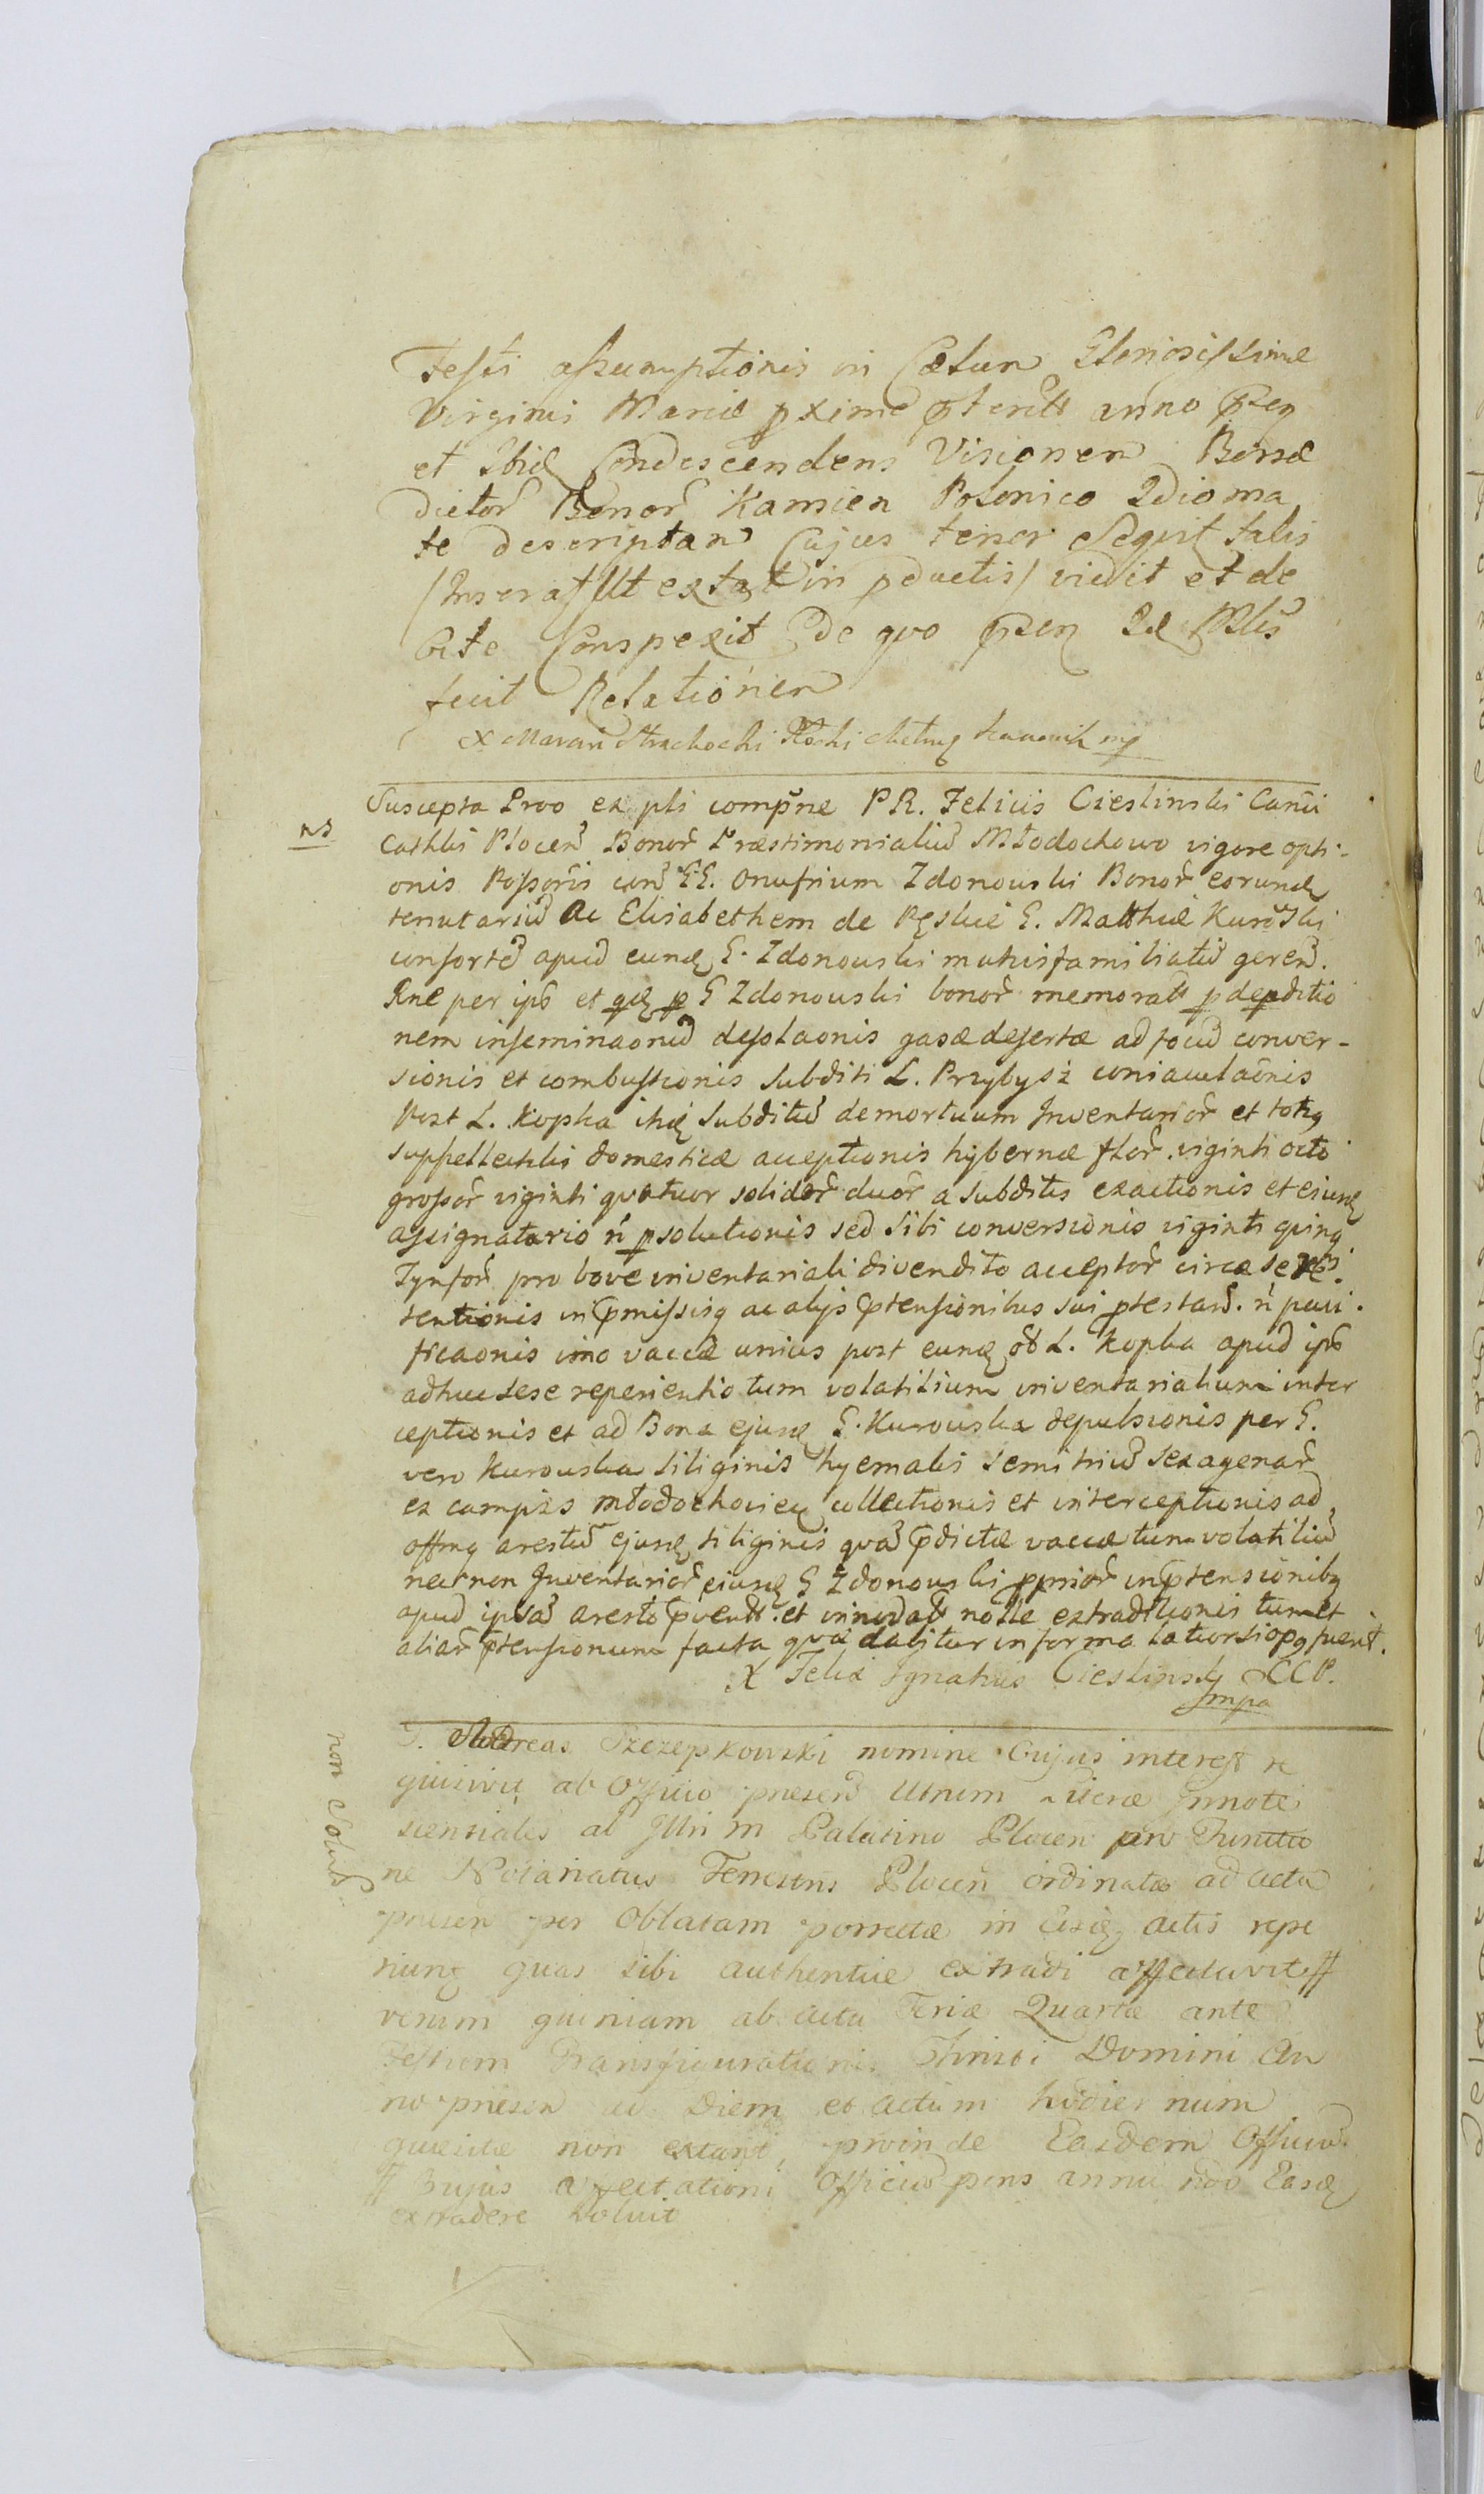 Festi assumptionis in Cœlum Gloriosissimæ
Virginis Mariæ pxime pteriti anno psen
et Ibid Condescendens Visionem Bonæ
dictor Bonor Kamien Polonico Idioma
te descriptam Cujus tenor Sequit talis
/Inserat Ut extat in pductis/ vidit et de
bite Conspexit De quo psen
fecit Relationem
X Maran
Suscepta Proo ex pti compne P R. Felicis Cieslinski Canci
Cathlis Plocen Bonor Præstimonialiu Młodochowo vigore opti-
onis Possoris con GG. Onufrium Zdonowski Bonor eorund
tenutariu Ac Elisabethem de G. Matthiæ Kurowski
consorte apud eund G. Zdonowski geren.
Rne per ips et G Zdonowski bonor memorat pdepditio
nem inseminaonu desolaonis gasæ desertæ ad focu conver-
sionis et combustionis Subditi L. Przybysz coniaculaonis
Post L. Kopka itid Subditu demortuum Inventarior et totiq
suppellectilis domesticæ acceptionis hybernæ flor. viginti octo
grossor viginti quatuor solidor duor a subditis exactionis et eiusd
assignatario n psolutionis sed Sibi conversionis viginti quinq
Tynfor pro bove inventariali divendito acceptor circa
tentionis in pmissisq ac alijs ptensionibus sui ptestan. n paci.
ficaonis imo vaccæ unius post eund L. Kopka apud ips
adhuc sese reperientis tum volatilium inventarialium inter
ceptionis et ad Bona ejusd G. Kurowska depulsionis per G.
vero Kurowska siliginis hyemalis semi triu sexagenar
ex campis młodochoviens collectionis et interceptionis ad
arestu ejusd siliginis qua pdictæ vaccæ tum volatiliu
necnon Inventarior eiusd G Zdonowski pprior in ptensionibq
apud ipsa aresto pvent. et innodat nolle extraditionis tum et
aliar ptensionum facta quæ dabitur in forma latior si opq fuerit.
X Felix Ignatius Cieslinsky CCP.
mpa
G. Andreas Szczepkowski nomine Cujus interest re
quisivit ab Officio presen Utrum Literæ Innote
scentiales ab Illri M Palatino Plocen pro Functio
ne Notariatus Terrestris Plocen ordinatæ ad acta
presen per Oblatam porrectæ in Eisd actis repe
riunt quas sibi authentice extradi affectavit #
verum quiniam ab actu Feriæ Quartæ ante
Festum Transfigurationis Christi Domini An
no presen ad Diem et actum hodiernum
quæsitæ non extant, proinde Easdem Officiu
# Cujus affectationi Officiu pens annuendo Easd
extradere Voluit
ns
non